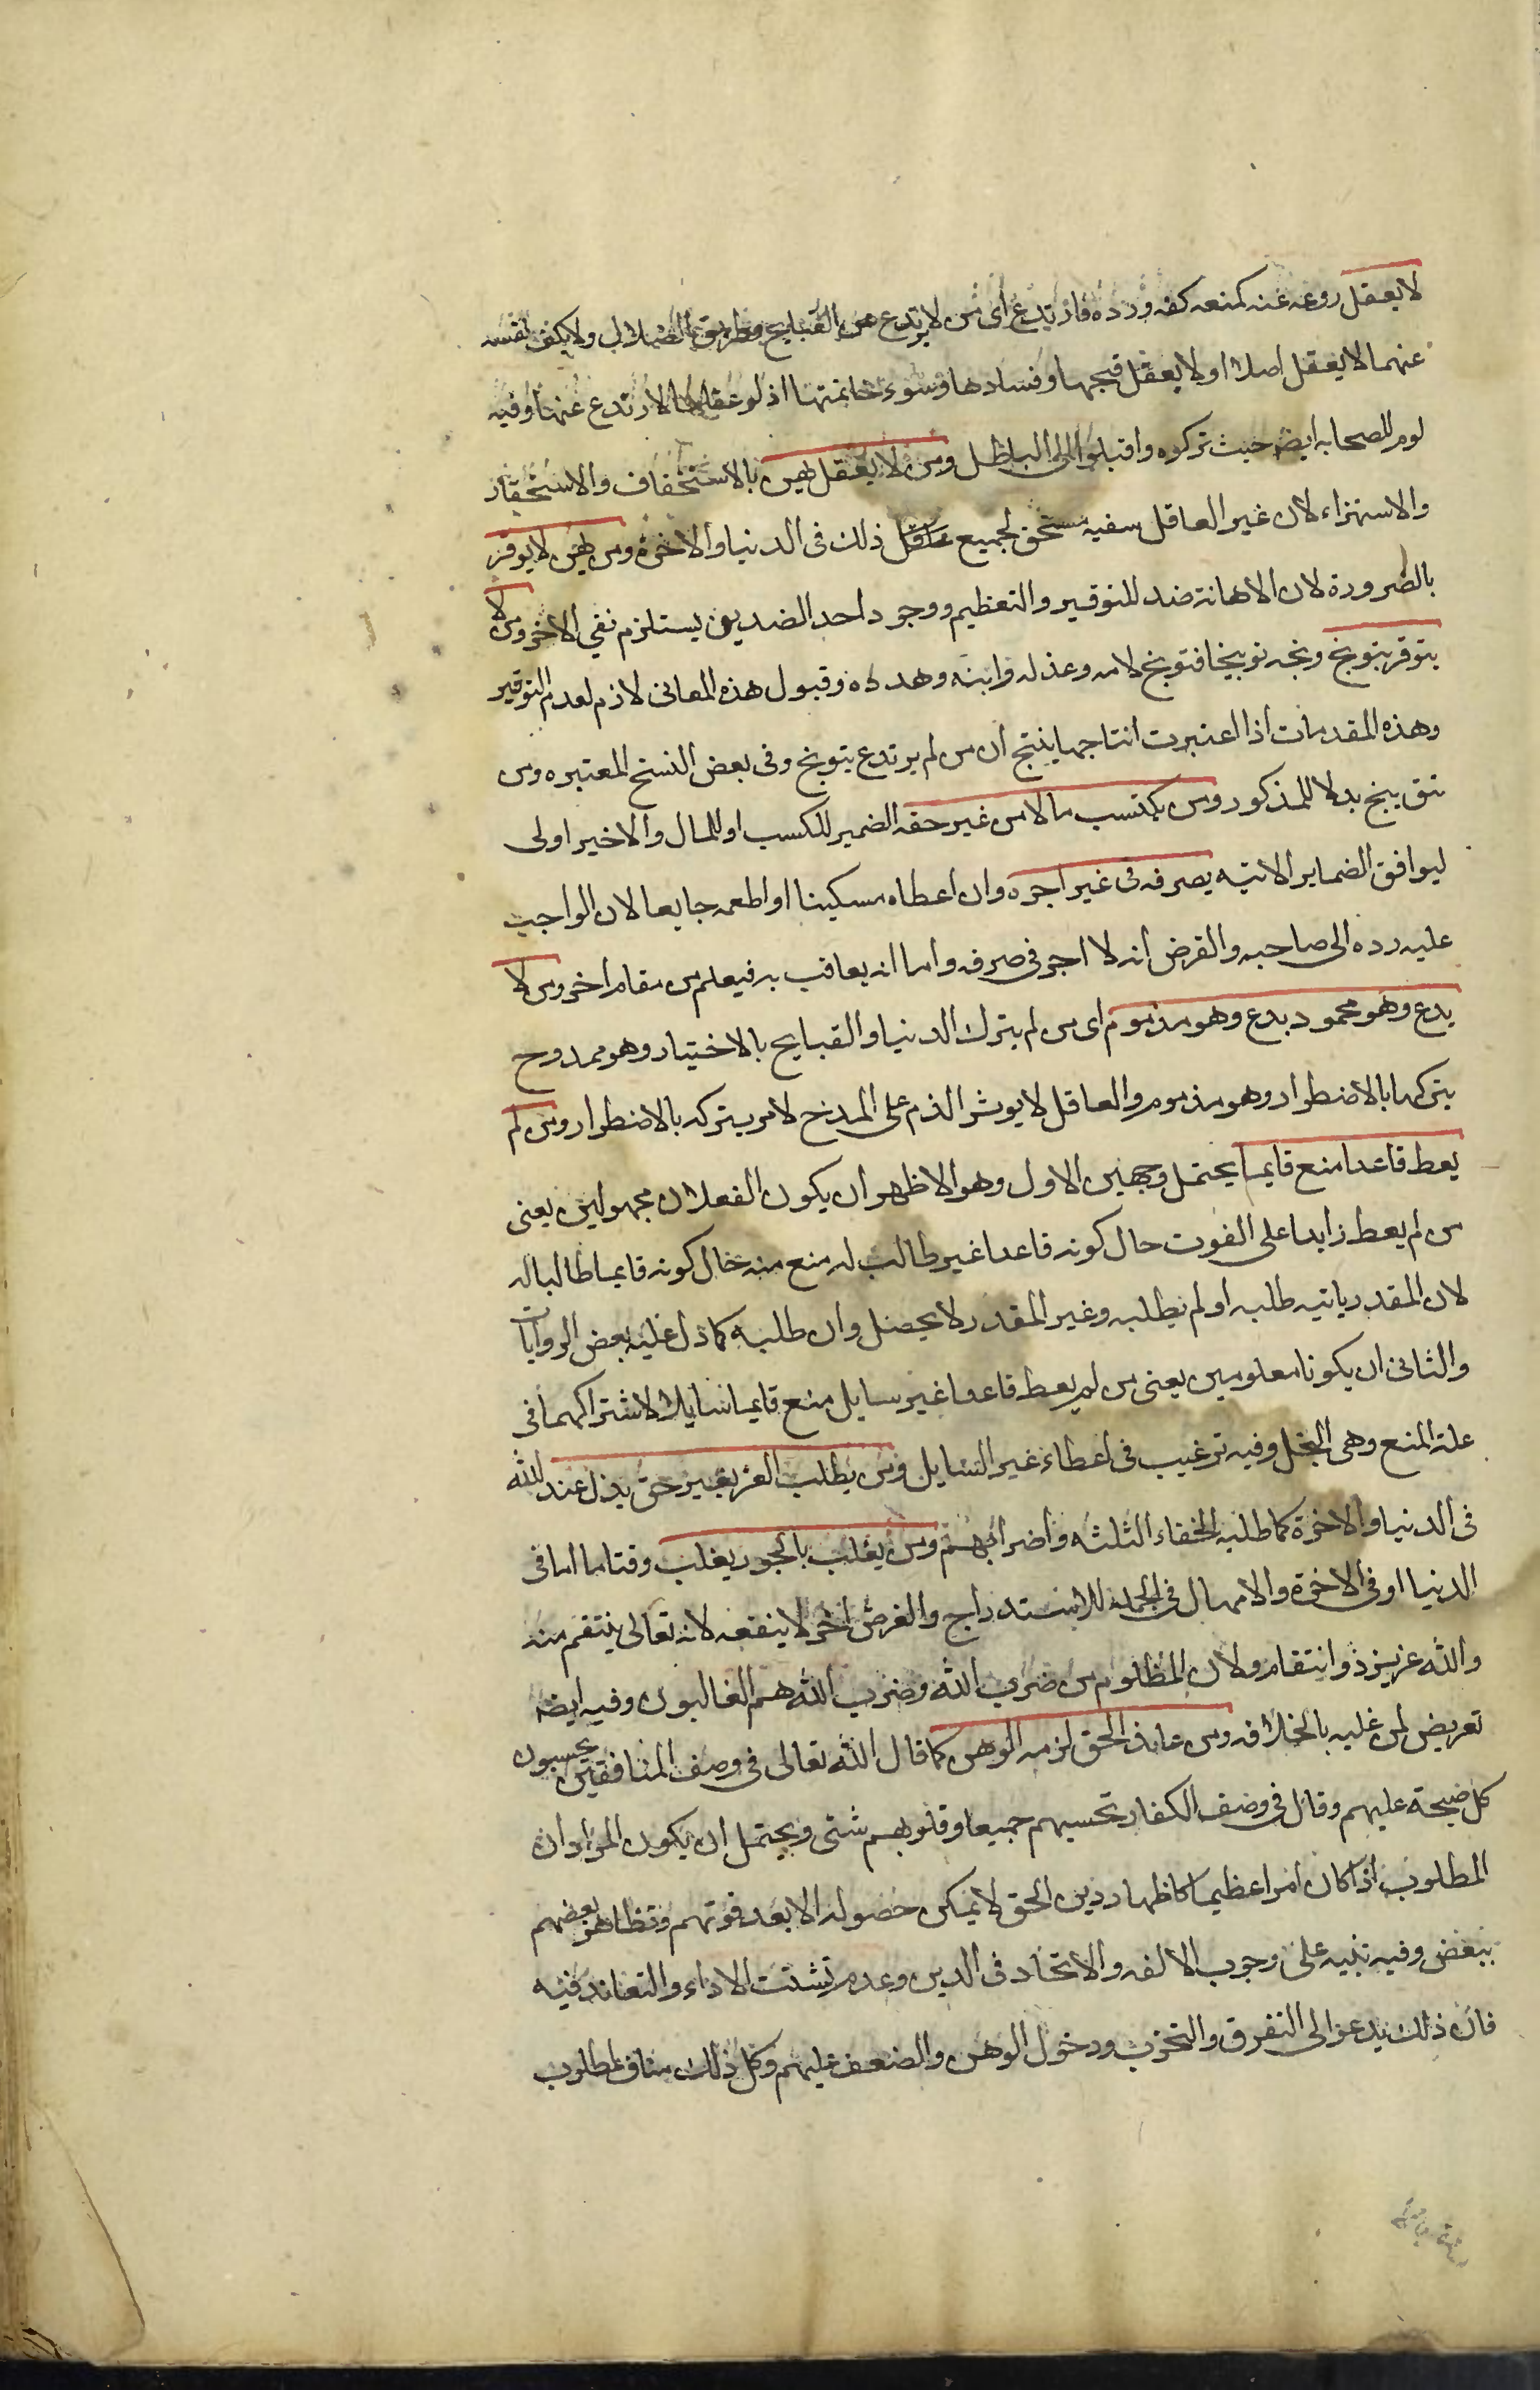 لا يعقل روعه عنه كمنعه كفه ورده فارتدع اى من لا يرتدع عن القبايح وطريق الضلال ولا يكف نفسه
عنهما لا يعقل اصلا او لا يعقل قبحها وفسادها وسوء خاتمتها اذ لو عقلها لارتدع عنها وفيه
لوم للصحابه ايضا حيث تركوه واقبلوا الى الباطل ومن لا يعقل يهن بالاستخفاف والاستحقار
والاستهزاء لان غير العاقل سفيه مستحق لجميع ذلك فى الدنيا والاخرة ومن يهن لا يوقر
بالضرورة لان الاهانة ضد للتوقير والتعظيم ووجود احد الضدين يستلزم نفي الاخر ومن لا
يتوقر يتوبخ وبخه توبيخا فتوبخ لامه وعذله وانبه وهدده وقبول هذه المعانى لازم لعدم التوقير
وهذه المقدمات اذا اعتبرت انتاجها ينتج ان من لم يرتدع يتوبخ وفى بعض النسخ المعتبره ومن
يتق ينج بدلا للمذكور ومن يكتسب مالا من غير حقه الضمير للكسب او للمال والاخير اولى
ليوافق الضماير الاتيه يصرفه فى غير اجره وان اعطاه مسكينا او اطعمه جايعا لان الواجب
عليه رده الى صاحبه والفرض انه لا اجر فى صرفه واما انه يعاقب به فيعلم من مقام اخر ومن لا
يدع وهو محمود يدع وهو مذموم اى من لم يترك الدنيا والقبايح بالاختيار وهو ممدوح
يتركها بالاضطرار وهو مذموم والعاقل لا يوثر الذم على المدح لامر يتركه بالاضطرار ومن لم
يعط قاعدا منع قايما يحتمل وجهين الاول وهو الاظهر ان يكون الفعلان مجهولين يعنى
من لم يعط زايدا على القوت حال كونه قاعدا غير طالب له منع منه حال كونه قايما طالبا له
لان المقدر ياتيه طلبه او لم يطلبه وغير المقدر لا يحصل وان طلبه كما دل عليه بعض الروايات
والثانى ان يكونا معلومين يعنى من لم يعط قاعدا غير سايل منع قايما سايلا لاشتراكهما فى
علة المنع وهى البخل وفيه ترغيب فى اعطاء غير السايل ومن يطلب العز بغير حق يذل عند الله
فى الدنيا والاخرة كما طلبه الخلفاء الثلثه واضرابهم ومن يغلب بالجور يغلب وقتاما اما فى
الدنيا او فى الاخرة والامهال فى الجملة للاستدراج والغرض اخر لا ينفعه لانه تعالى ينتقم منه
والله عزيز ذو انتقام ولان المظلوم من حزب الله وحزب الله هم الغالبون وفيه ايضا
تعريض لمن غلبه بالخلافه ومن عاند الحق لزمه الوهن كما قال الله تعالى فى وصف المنافقين يحسبون
كل صيحة عليهم وقال فى وصف الكفار تحسبهم جميعا وقلوبهم شتى ويحتمل ان يكون المراد ان
المطلوب اذا كان امرا عظيما كاظهار دين الحق لا يمكن حصوله الا بعد قوتهم وتظاهر بعضهم
ببعض وفيه تنبيه على وجوب الالفه والاتحاد فى الدين وعدم تشتت الاراء والتعاند فيه
فان ذلك يدعو الى التفرق والتحزب ودخول الوهن والضعف عليهم وكل ذلك مناف لمطلوب